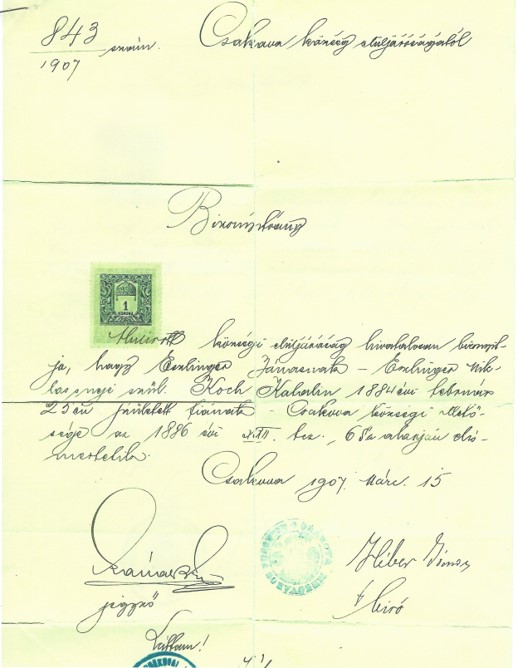 843 szám. Csakova község elüljáróságától
1907
Bizonyítvány
1
KORONA
Alulirott községi elüljáróság hivatalosan bizonyit-
ja, hogy Eszlinger Jánosnak – Eszlinger Mik-
lósné szül. Koch Katalin 1884 évi február
25én született fiának – Csakova községi illető-
sége az 1886 évi XXII. tcz., 6 § a alapján elis-
mertetik.
Csakova 1907. Márc. 15
jegyző
Hiber
biró
Láttam!